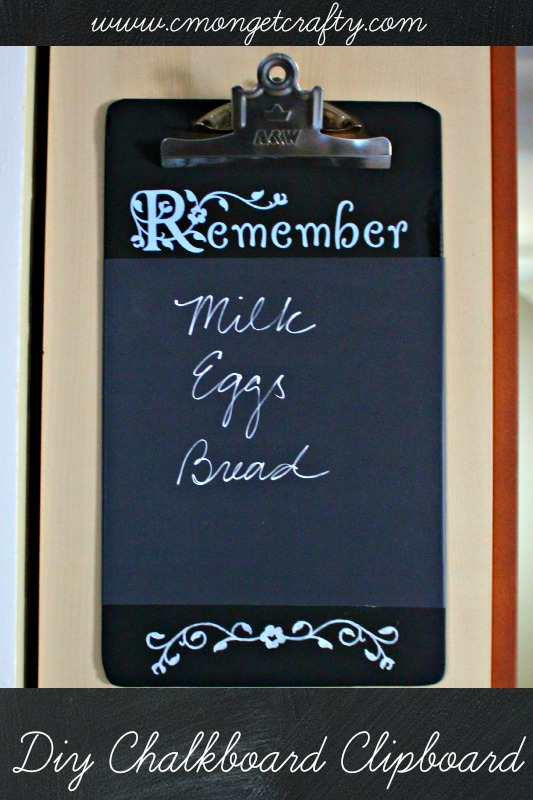 www.cmongetcrafty.com
Remember
Milk
Eggs
Bread
Diy Chalkboard Clipboard